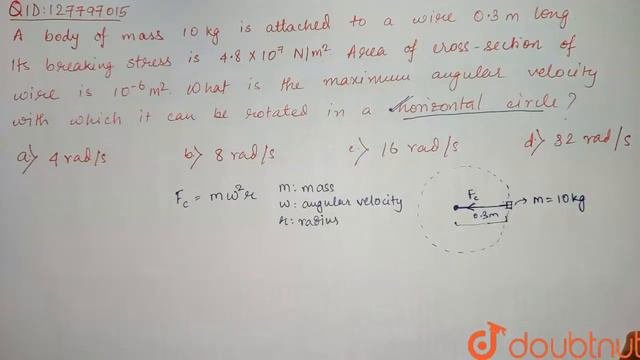 QID:127797015
A body of mass 10 kg is attached to a wire 0.3 m long
Its breaking stress is 4.8 × 10⁷ N/m². Area of cross-section of
wire is 10⁻⁶ m². What is the maximum angular velocity
with which it can be rotated in a horizontal circle?
a) 4 rad/s b) 8 rad/s c) 16 rad/s d) 32 rad/s
Fc = mω²r
m: mass
ω: angular velocity
r: radius
Fc
0.3m
m = 10kg
doubtnut